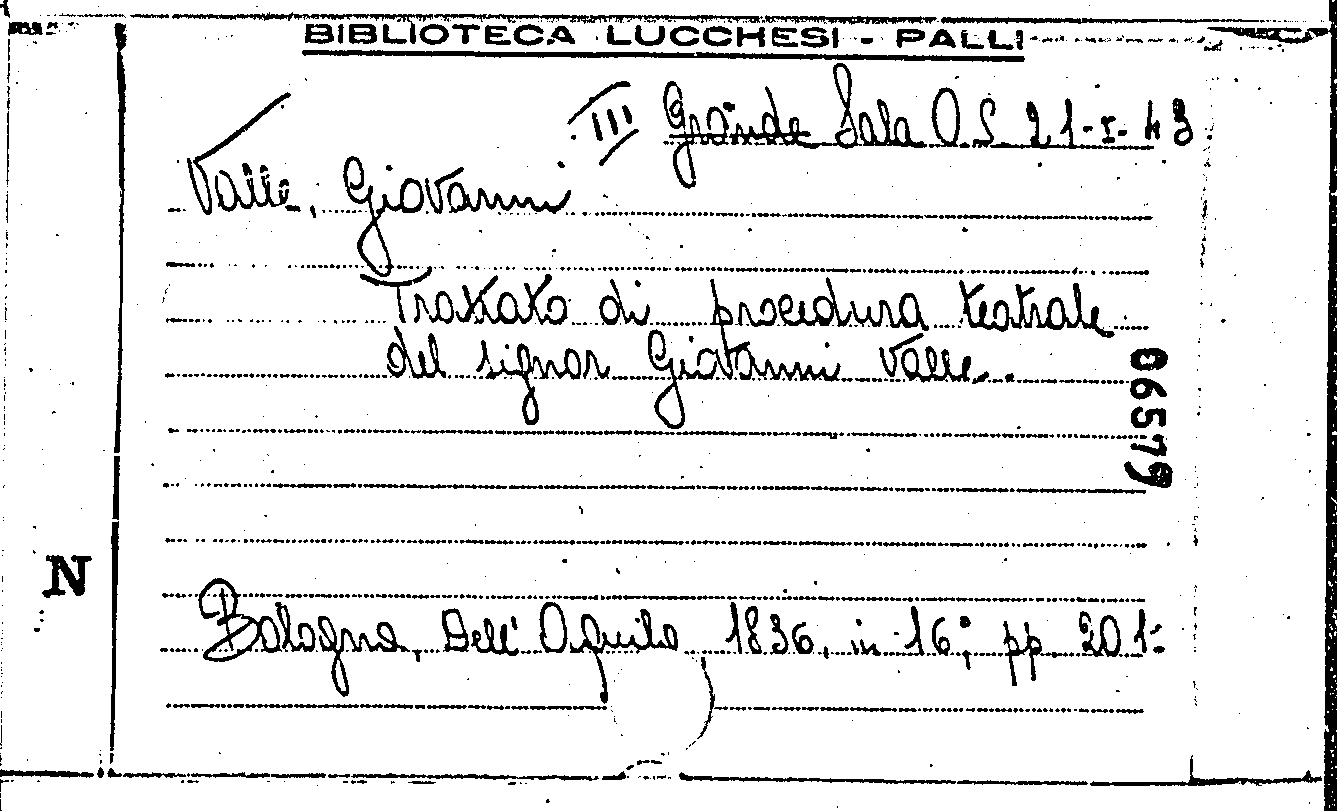 BIBLIOTECA LUCCHESI - PALLI
III Grande Sala O.S. 21-I-43
Valle, Giovanni
Trattato di procedura teatrale
del signor Giovanni Valle.
06579
N
Bologna, Dell'Aquila 1836, in-16°, pp. 201.